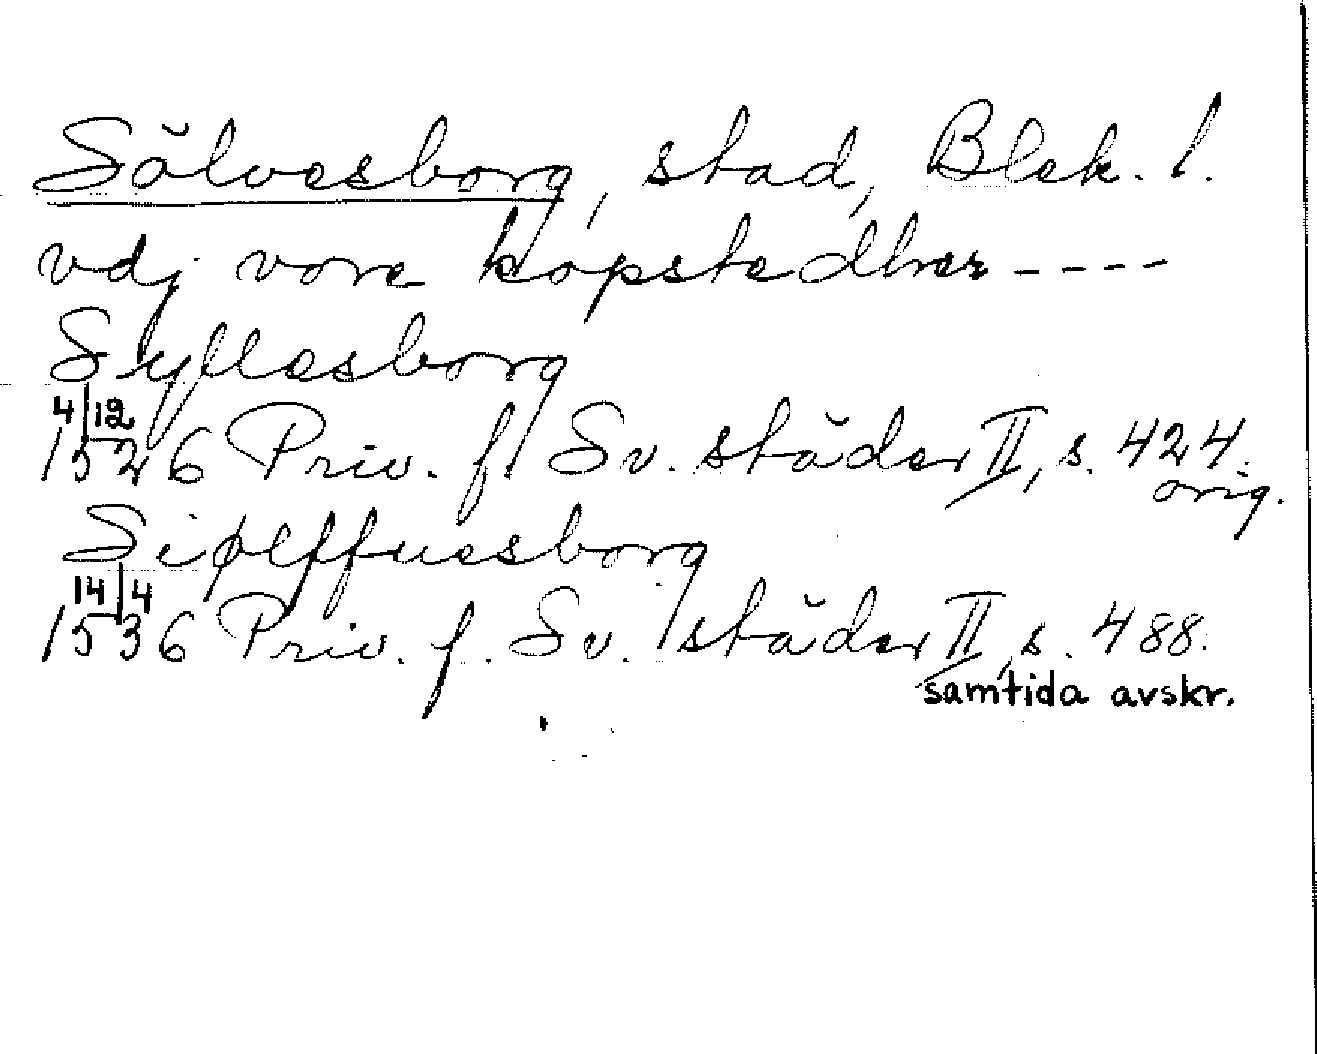 Sölvesborg, stad, Blek. l.
vdj vore köpstedher ----
Syllesborg
4/12
1526 Priv. f. Sv. städer II, s. 424.
orig.
Siølffuesborg
14/4
1536 Priv. f. Sv. städer II, s. 488.
samtida avskr.